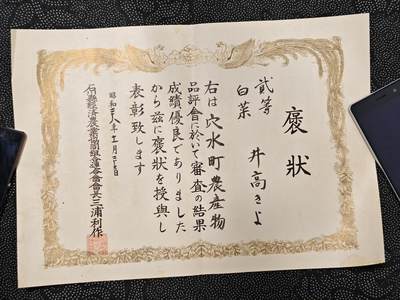 褒狀
貳等
白菜 井高きよ
右は穴水町農産物
品評會に於いて審査の結果
成績優良でありました
から茲に褒狀を授與し
表彰致します
昭和二十八年十一月二十日
三浦利作